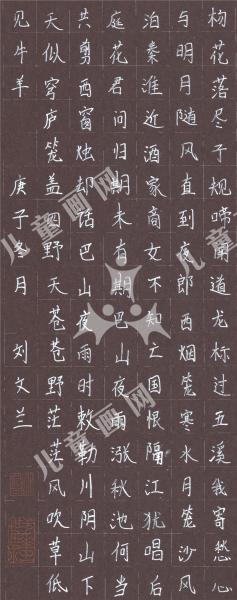 杨花落尽子规啼闻道龙标过五溪我寄愁心
与明月随风直到夜郎西烟笼寒水月笼沙风
泊秦淮近酒家商女不知亡国恨隔江犹唱后
庭花君问归期未有期巴山夜雨涨秋池何当
共剪西窗烛却话巴山夜雨时敕勒川阴山下
天似穹庐笼盖四野天苍苍野茫茫风吹草低
见牛羊 庚子冬月 刘文兰
儿童画网
儿童画网
儿童画网